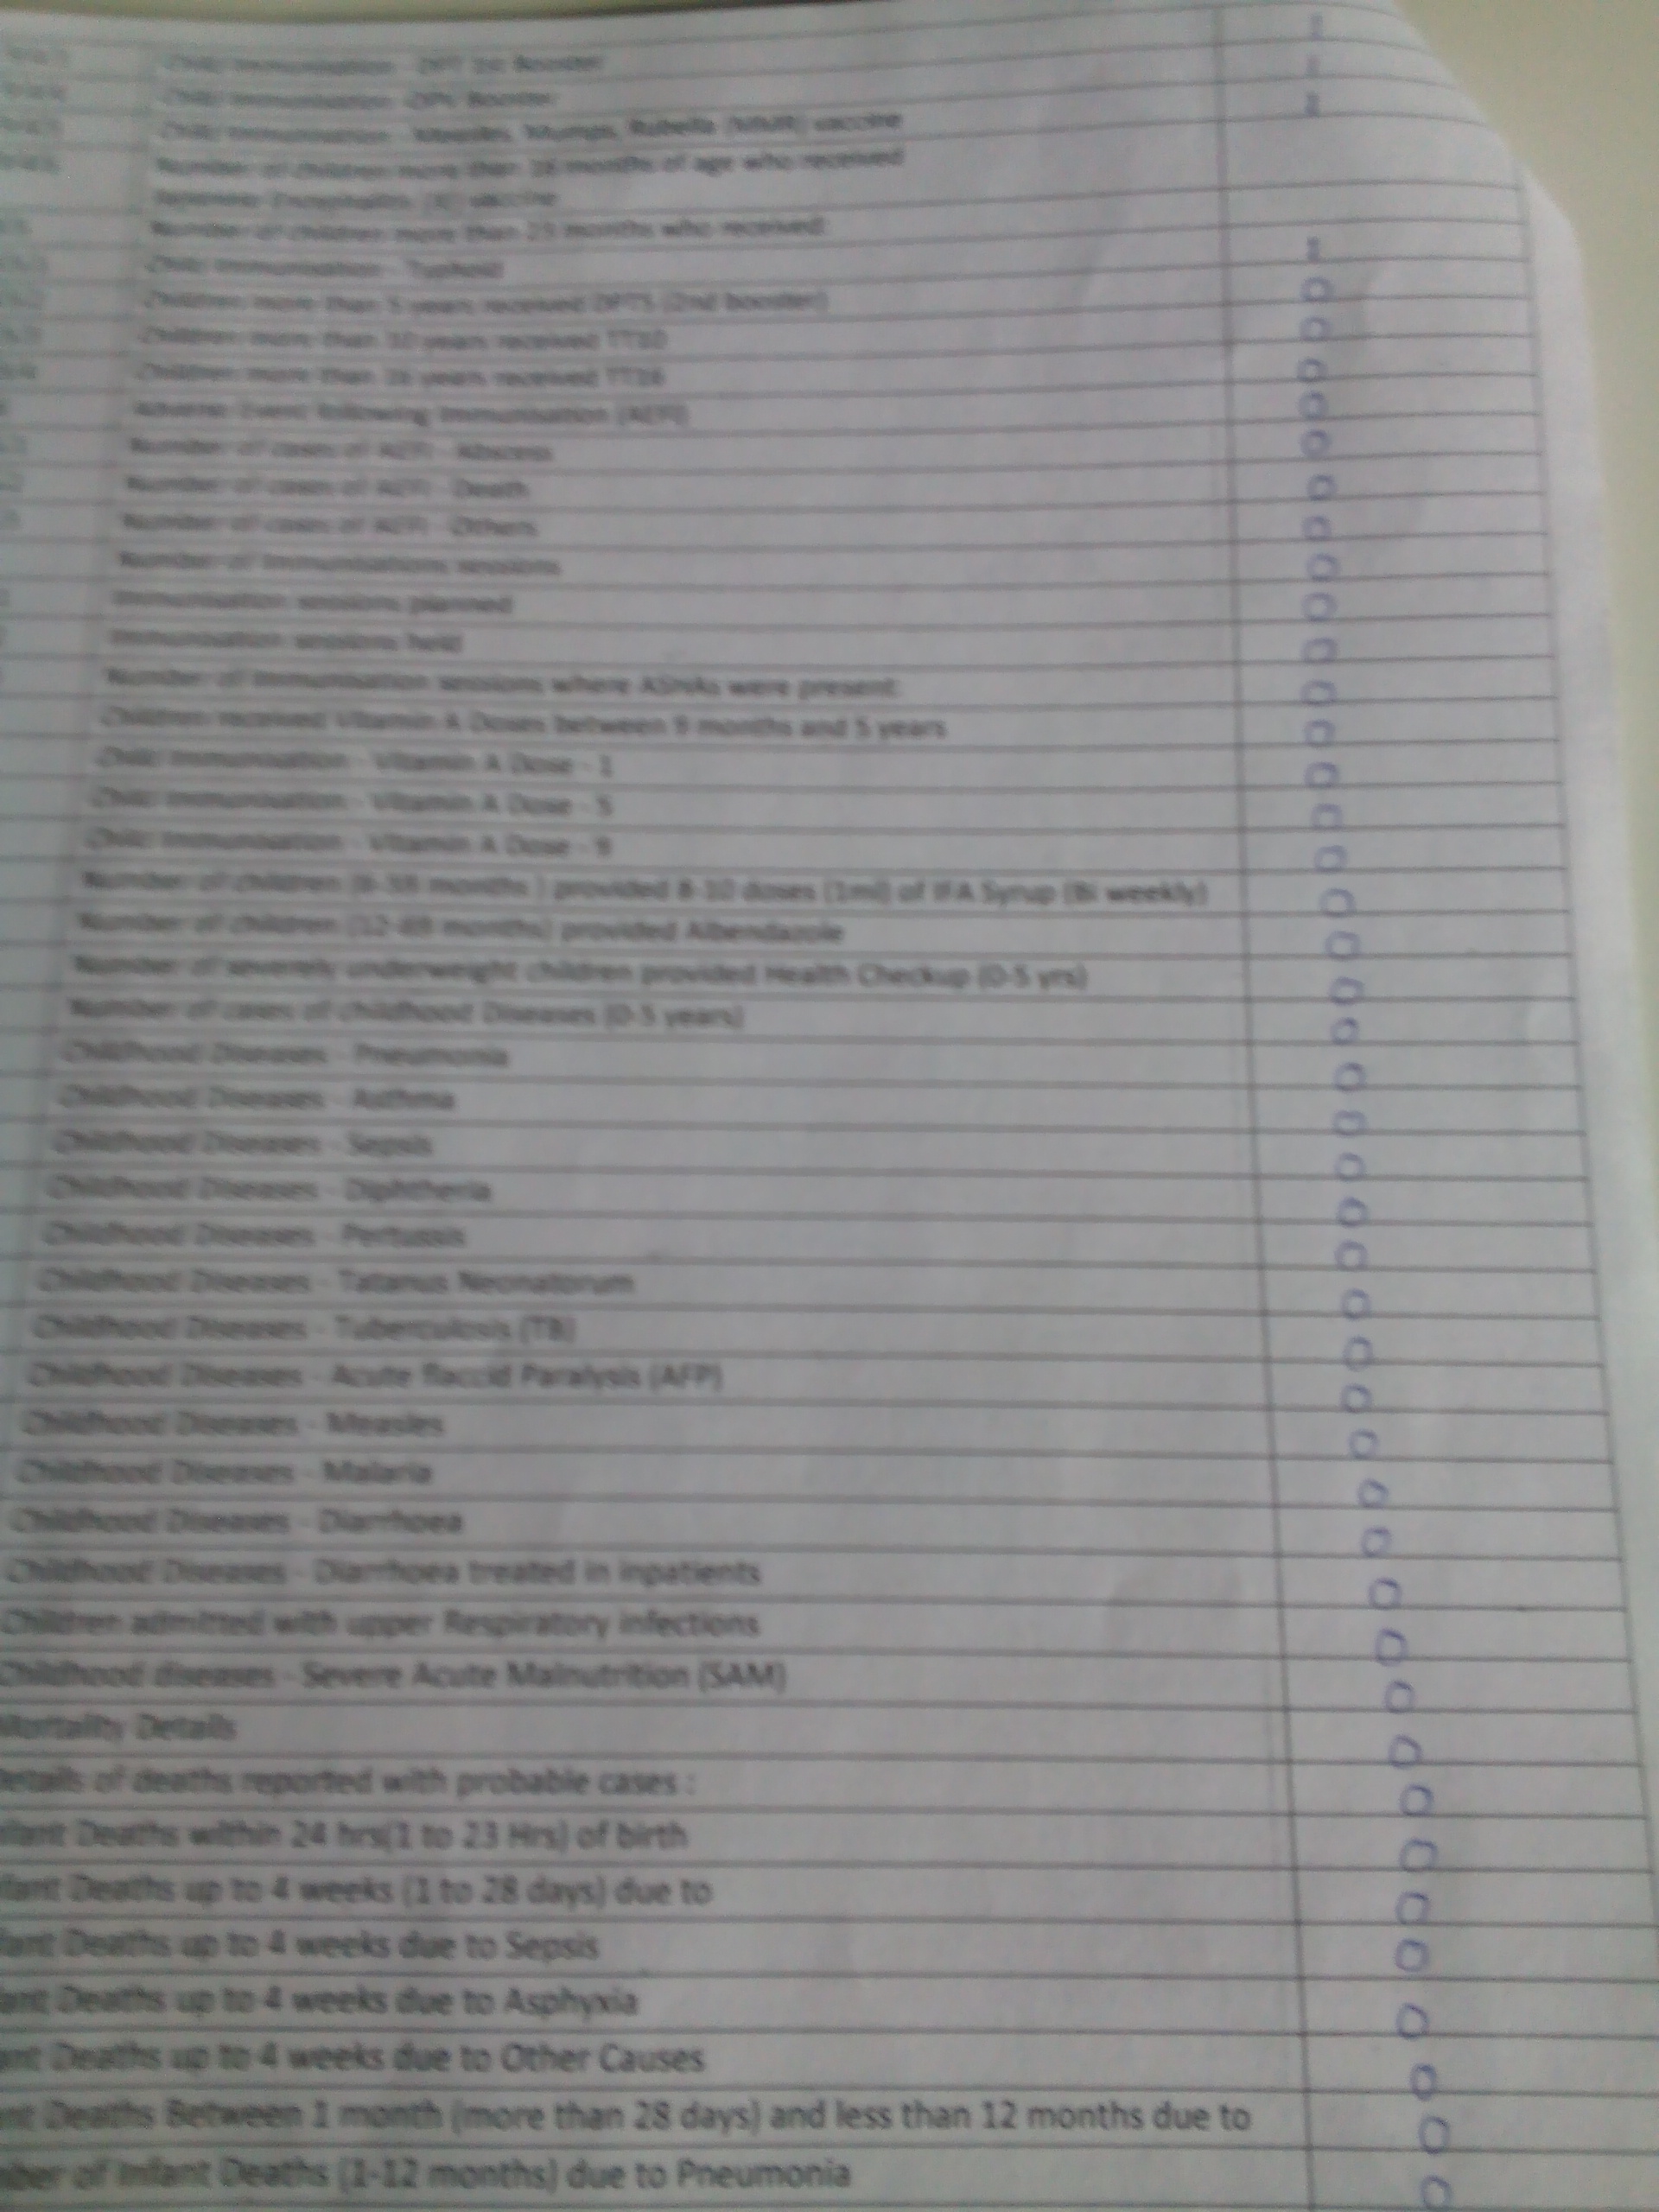 Child Immunisation - DPT 1st Booster 1
Child Immunisation - OPV Booster 1
Child Immunisation - Measles, Mumps, Rubella (MMR) vaccine 1
Number of children more than 16 months of age who received
Japanese Encephalitis (JE) vaccine
Number of children more than 23 months who received:
Child Immunisation - Typhoid 1
Children more than 5 years received DPT5 (2nd booster) 0
Children more than 10 years received TT10 0
Children more than 16 years received TT16 0
Adverse Event Following Immunisation (AEFI) 0
Number of cases of AEFI - Abscess 0
Number of cases of AEFI - Death 0
Number of cases of AEFI - Others 0
Number of Immunisations sessions 0
Immunisation sessions planned 0
Immunisation sessions held 0
Number of Immunisation sessions where ASHAs were present: 0
Children received Vitamin A Doses between 9 months and 5 years 0
Child Immunisation - Vitamin A Dose - 1 0
Child Immunisation - Vitamin A Dose - 5 0
Child Immunisation - Vitamin A Dose - 9 0
Number of children (6-59 months ) provided 8-10 doses (1ml) of IFA Syrup (Bi weekly) 0
Number of children (12-59 months) provided Albendazole 0
Number of severely underweight children provided Health Checkup (0-5 yrs) 0
Number of cases of childhood Diseases (0-5 years) 0
Childhood Diseases - Pneumonia 0
Childhood Diseases - Asthma 0
Childhood Diseases - Sepsis 0
Childhood Diseases - Diphtheria 0
Childhood Diseases - Pertussis 0
Childhood Diseases - Tatanus Neonatorum 0
Childhood Diseases - Tuberculosis (TB) 0
Childhood Diseases - Acute flaccid Paralysis (AFP) 0
Childhood Diseases - Measles 0
Childhood Diseases - Malaria 0
Childhood Diseases - Diarrhoea 0
Childhood Diseases - Diarrhoea treated in inpatients 0
Children admitted with upper Respiratory infections 0
Childhood diseases - Severe Acute Malnutrition (SAM) 0
Mortality Details 0
Details of deaths reported with probable cases : 0
fant Deaths within 24 hrs(1 to 23 Hrs) of birth 0
fant Deaths up to 4 weeks (1 to 28 days) due to 0
ant Deaths up to 4 weeks due to Sepsis 0
ant Deaths up to 4 weeks due to Asphyxia 0
nt Deaths up to 4 weeks due to Other Causes 0
nt Deaths Between 1 month (more than 28 days) and less than 12 months due to 0
ber of Infant Deaths (1-12 months) due to Pneumonia 0